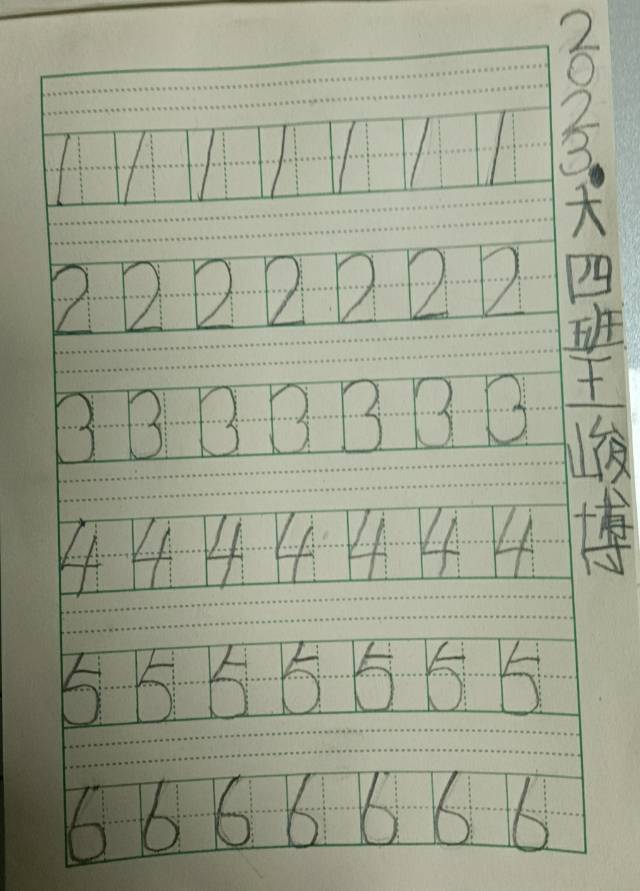 1 1 1 1 1 1 1
2 2 2 2 2 2 2
3 3 3 3 3 3 3
4 4 4 4 4 4 4
5 5 5 5 5 5 5
6 6 6 6 6 6 6
2023.大四班王一峻博